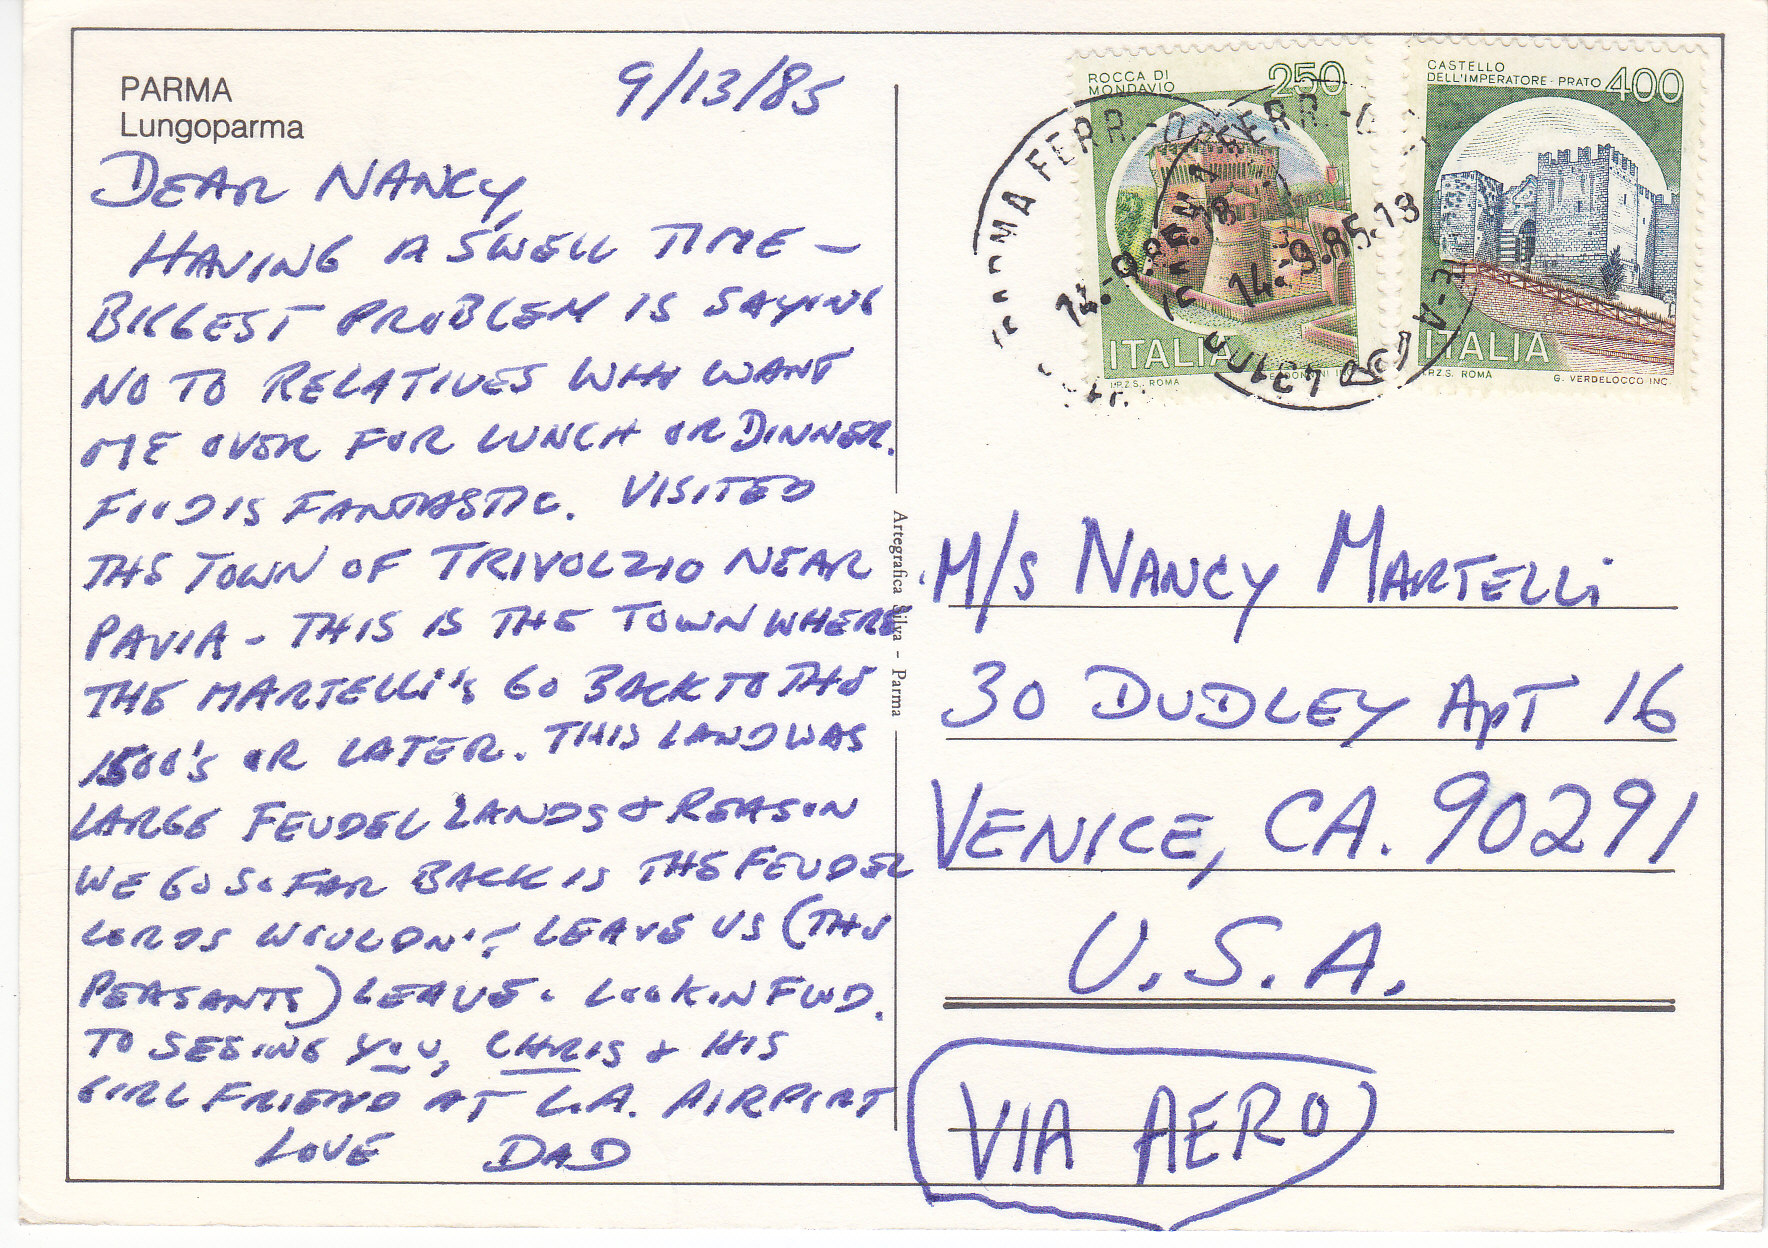 PARMA
Lungoparma
9/13/85
DEAR NANCY,
HAVING A SWELL TIME -
BIGGEST PROBLEM IS SAYING
NO TO RELATIVES WHO WANT
ME OVER FOR LUNCH OR DINNER.
FOOD IS FANTASTIC. VISITED
THE TOWN OF TRIVOLZIO NEAR
PAVIA - THIS IS THE TOWN WHERE
THE MARTELLI'S GO BACK TO THE
1500'S OR LATER. THIS LAND WAS
LARGE FEUDEL LANDS & REASON
WE GO SO FAR BACK IS THE FEUDEL
LORDS WOULDN'T LEAVE US (THE
PEASANTS) LEAVE. LOOKIN FWD.
TO SEEING YOU, CHRIS & HIS
GIRL FRIEND AT L.A. AIRPORT
LOVE DAD
Artegrafica Silva - Parma
ROCCA DI
MONDAVIO
250
ITALIA
I.P.Z.S. ROMA
CASTELLO
DELL'IMPERATORE - PRATO 400
ITALIA
I.P.Z.S. ROMA G. VERDELOCCO INC.
PARMA FERR.
14.-9.85.18
M/S NANCY MARTELLI
30 DUDLEY APT 16
VENICE, CA. 90291
U.S.A.
VIA AERO